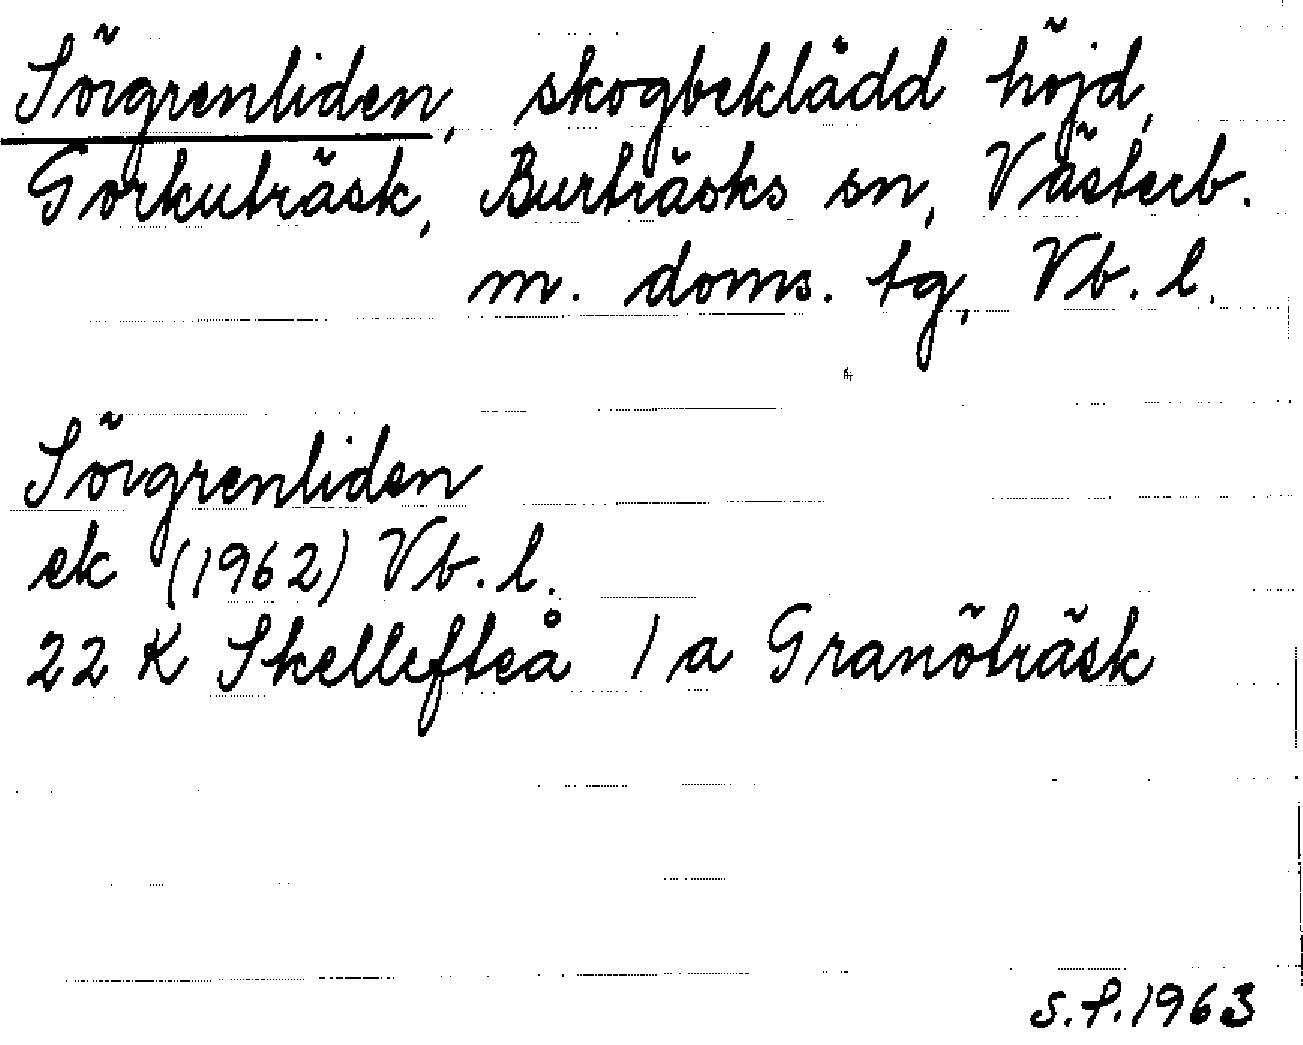 Sörgrenliden, skogbeklädd höjd,
Gorkuträsk, Burträsks sn, Västerb.
m. doms. tg, Vb. l.
Sörgrenliden
ek (1962) Vb. l.
22 K Skellefteå 1 a Granöträsk
S.P. 1963